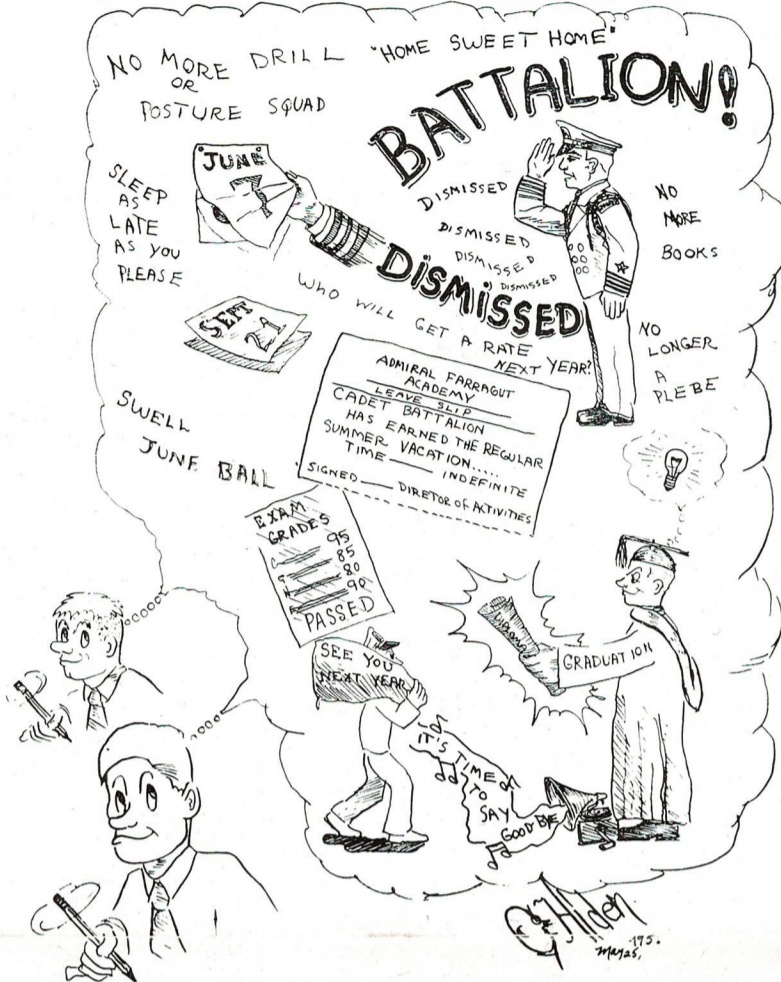 NO MORE DRILL
OR
POSTURE SQUAD
"HOME SWEET HOME"
BATTALION!
JUNE
7
SLEEP
AS
LATE
AS YOU
PLEASE
DISMISSED
DISMISSED
DISMISSED
DISMISSED
DISMISSED
NO
MORE
BOOKS
SEPT
21
WHO WILL GET A RATE
NEXT YEAR?
NO
LONGER
A
PLEBE
ADMIRAL FARRAGUT
ACADEMY
LEAVE SLIP
CADET BATTALION
HAS EARNED THE REGULAR
SUMMER VACATION.....
TIME INDEFINITE
SIGNED DIRETOR OF ACTIVITIES
SWELL
JUNE BALL
EXAM
GRADES
95
85
80
90
PASSED
SEE YOU
NEXT YEAR
GRADUATION
IT'S TIME
TO
SAY
GOOD BYE
Hilden
May 25,